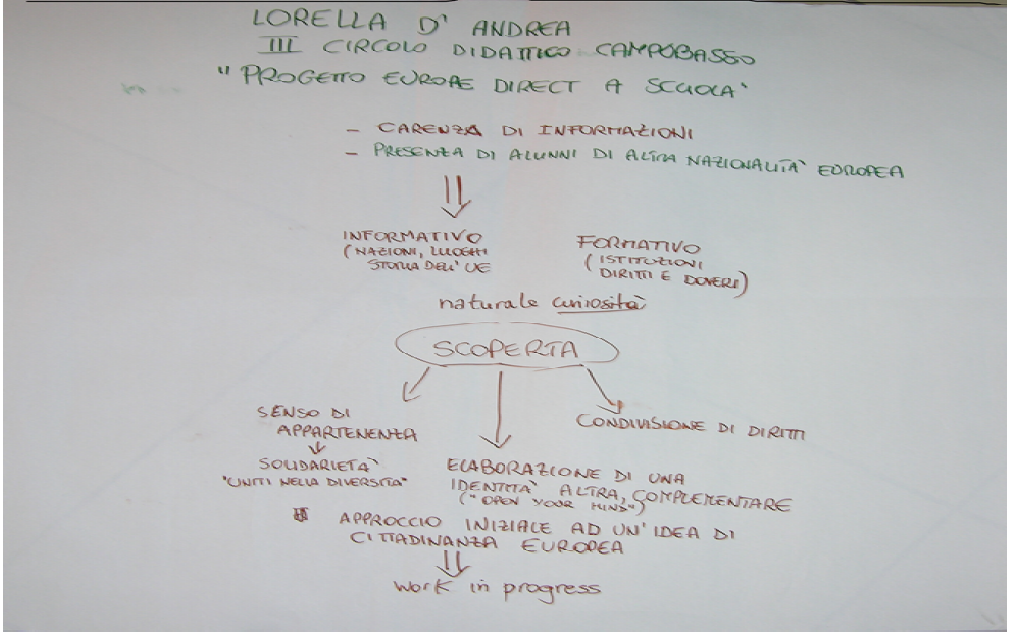 LORELLA D' ANDREA
III CIRCOLO DIDATTICO CAMPOBASSO
"PROGETTO EUROPE DIRECT A SCUOLA"
- CARENZA DI INFORMAZIONI
- PRESENZA DI ALUNNI DI ALTRA NAZIONALITA' EUROPEA
INFORMATIVO
(NAZIONI, LUOGHI
STORIA DELL' UE
FORMATIVO
(ISTITUZIONI
DIRITTI E DOVERI)
naturale curiosità
SCOPERTA
SENSO DI
APPARTENENZA
SOLIDARIETA'
"UNITI NELLA DIVERSITA"
CONDIVISIONE DI DIRITTI
ELABORAZIONE DI UNA
IDENTITA' ALTRA, COMPLEMENTARE
("OPEN YOUR MIND")
APPROCCIO INIZIALE AD UN'IDEA DI
CITTADINANZA EUROPEA
work in progress